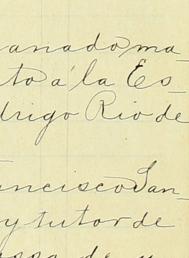 anado ma-
to á la Es-
drigo Rio de
ancisco San-
y tutor de